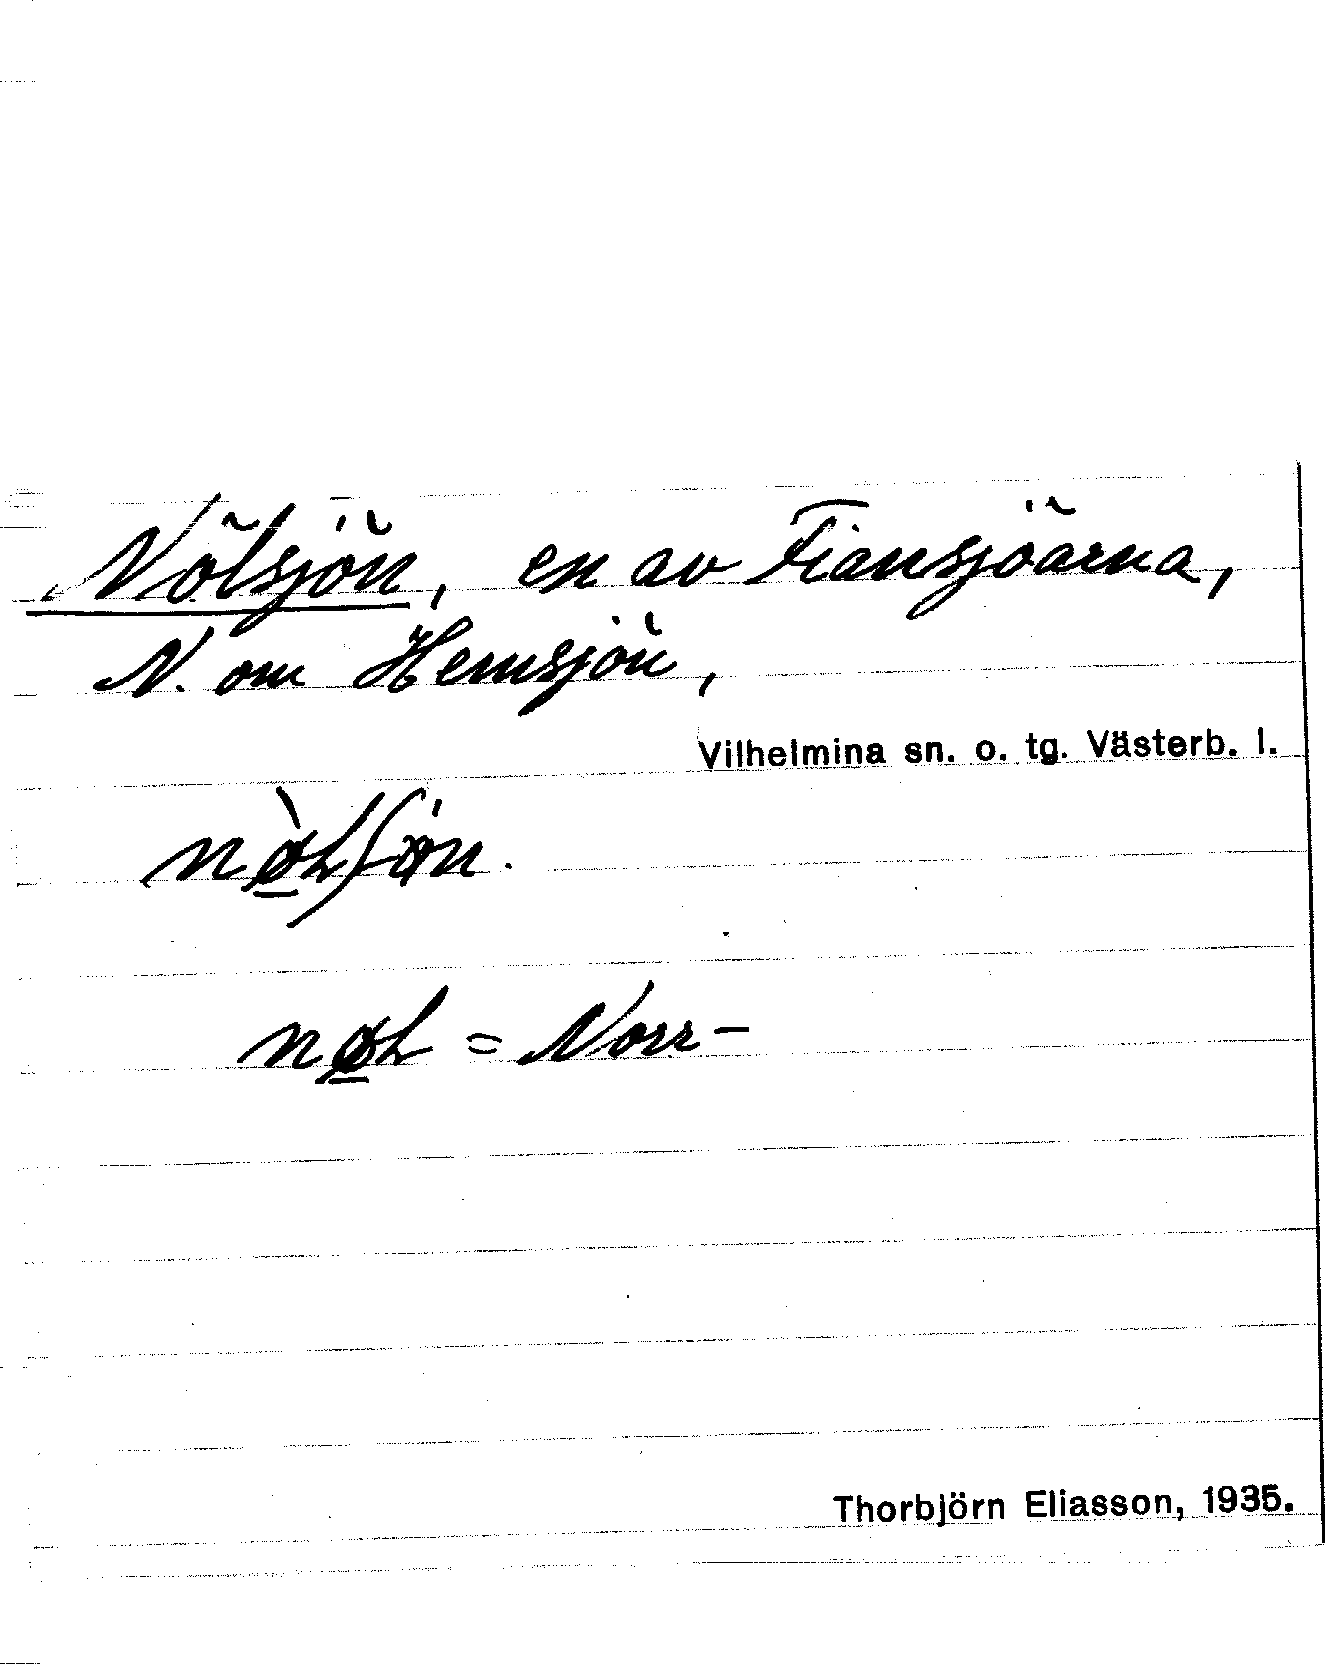 Nölsjön, en av Fiansjöarna,
N. om Hemsjön,
Vilhelmina sn. o. tg. Västerb. l.
nø̀lʃøn.
nøl = Norr-
Thorbjörn Eliasson, 1935.